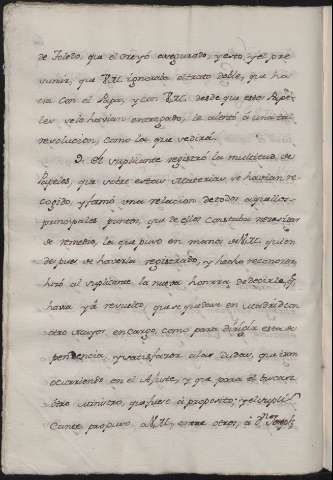 de Toledo, que el creyó asegurado, y esto, y el pre
sumir, que V.M. ignoraba el trato doble, que ha
cia con el Papa, y con V.M. desde que estos Pape
les se lo havian entregado, le alentó a una tal
revolucion, como la que se dirá.
9. El suplicante registró la multitud de
Papeles, que sobre estas Materias se havian re
cogido, y formó una relacion de todos aquellos
principales puntos, que de ellos constaba necesitar
de remedio, la que puso en manos de V.M. quien
despues de haverla registrado, y hecho reconocer,
hizó al suplicante la nueva honrra de decirle, q.
havia yá resuelto, que se quedase en Madrid con
otro mayor encargo, como para dirigir esta de
pendencia, y satisfazer a las dudas, que iran
ocurriendo en el Ajuste, y q.e para el buscase
otro Ministro, que fuese á proposito; y el supli
cante propuso á V.M., entre otros, á D.n Joseph